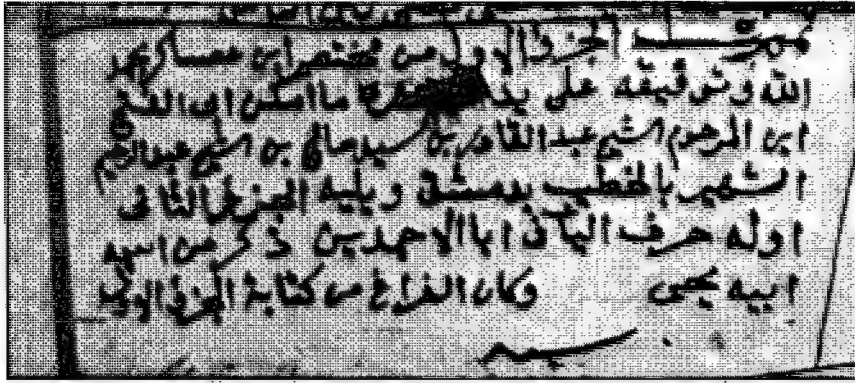 تم الجزء الاول من مختصر ابن عساكر بحمد
الله وتوفيقه على يد ابي الفتح
ابن المرحوم الشيخ عبد القادر بن السيد صالح بن الشيخ عبد الرحيم
الشهير بالخطيب بدمشق ويليه الجزء الثاني
اوله حرف الباء في ابا الاحمدين ذكر من اسمه
ابيه يحيى وكان الفراغ من كتابة الجزء الاول